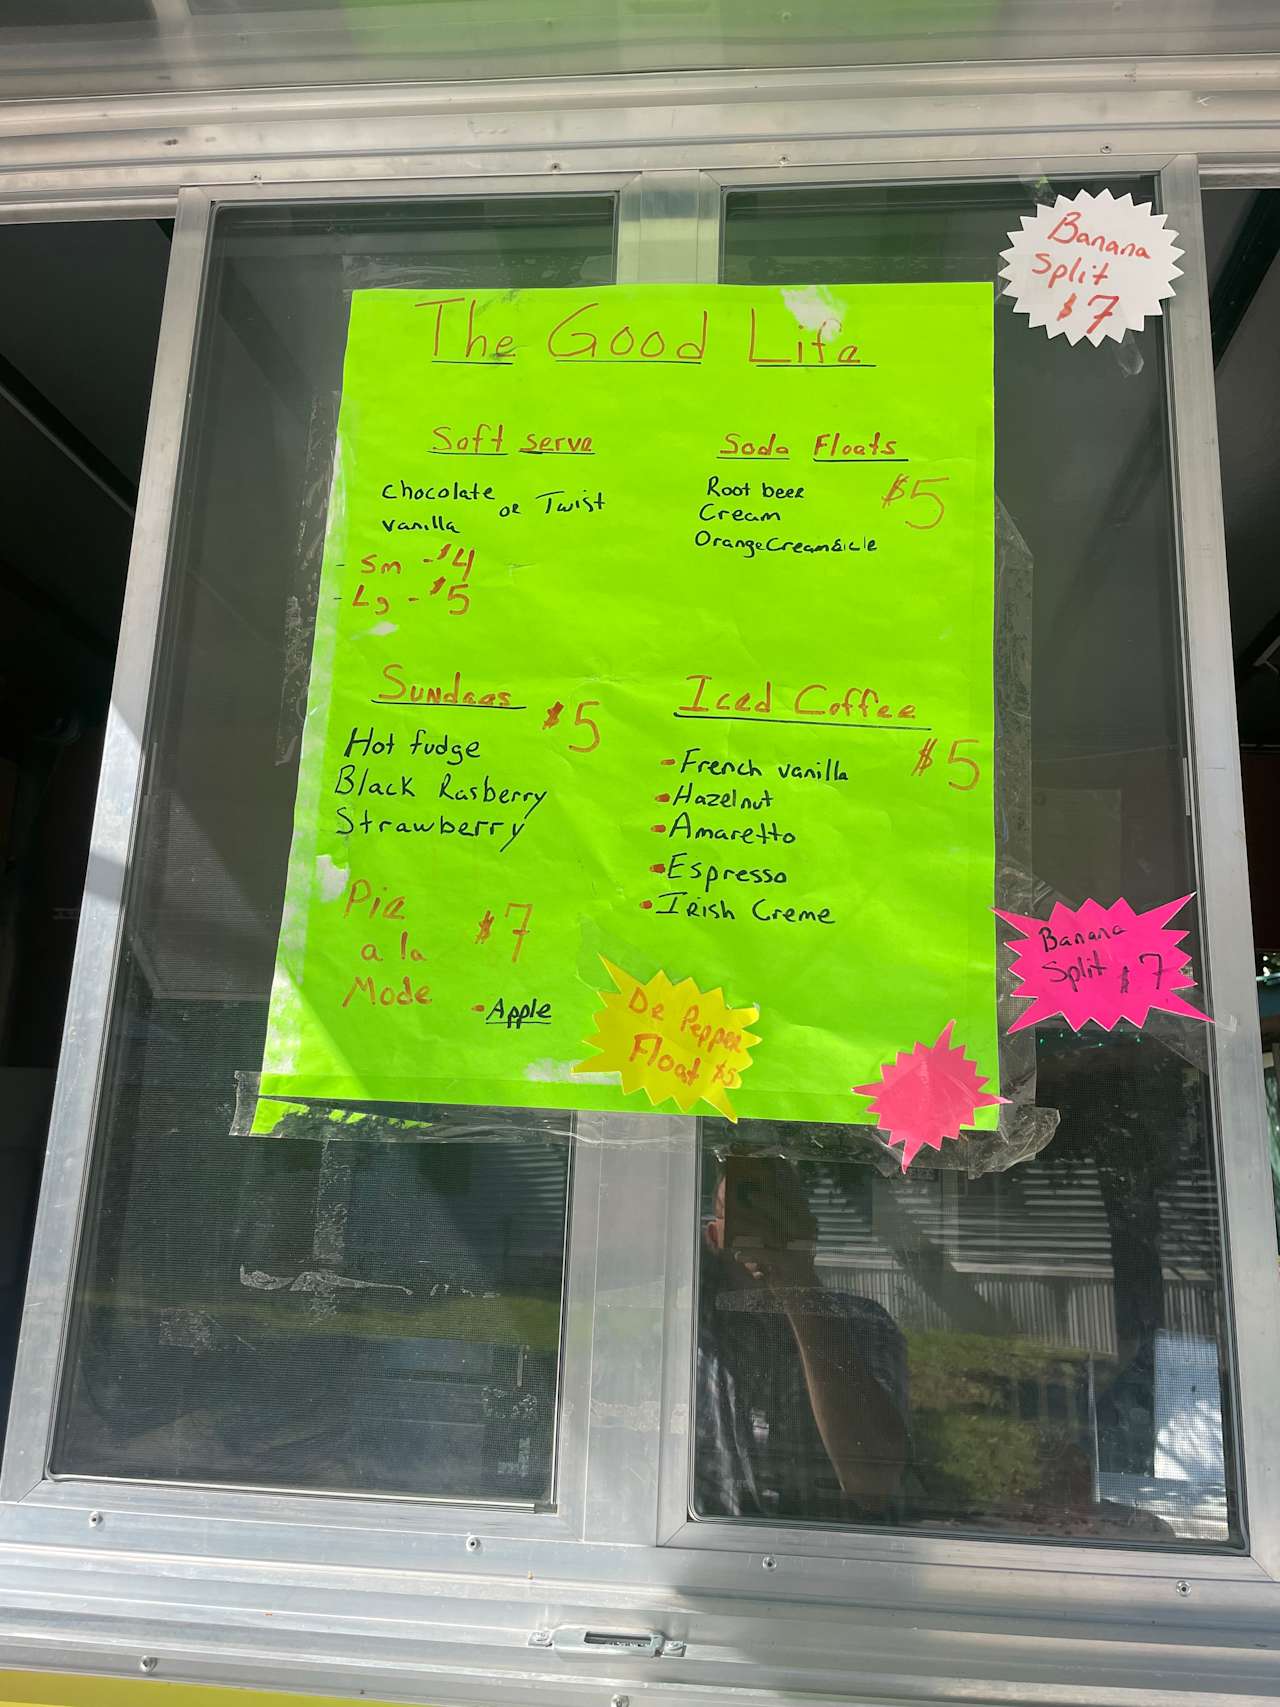 The Good Life
Banana
Split
$7
Soft serve
chocolate
vanilla
or Twist
- Sm - $4
- Lg - $5
Soda Floats
$5
Root beer
Cream
Orange Creamsicle
Sundaes
$5
Hot fudge
Black Rasberry
Strawberry
Iced Coffee
$5
- French vanilla
- Hazelnut
- Amaretto
- Espresso
- Irish Creme
Pie
a la
Mode
$7
- Apple
Dr Pepper
Float $5
Banana
Split $7